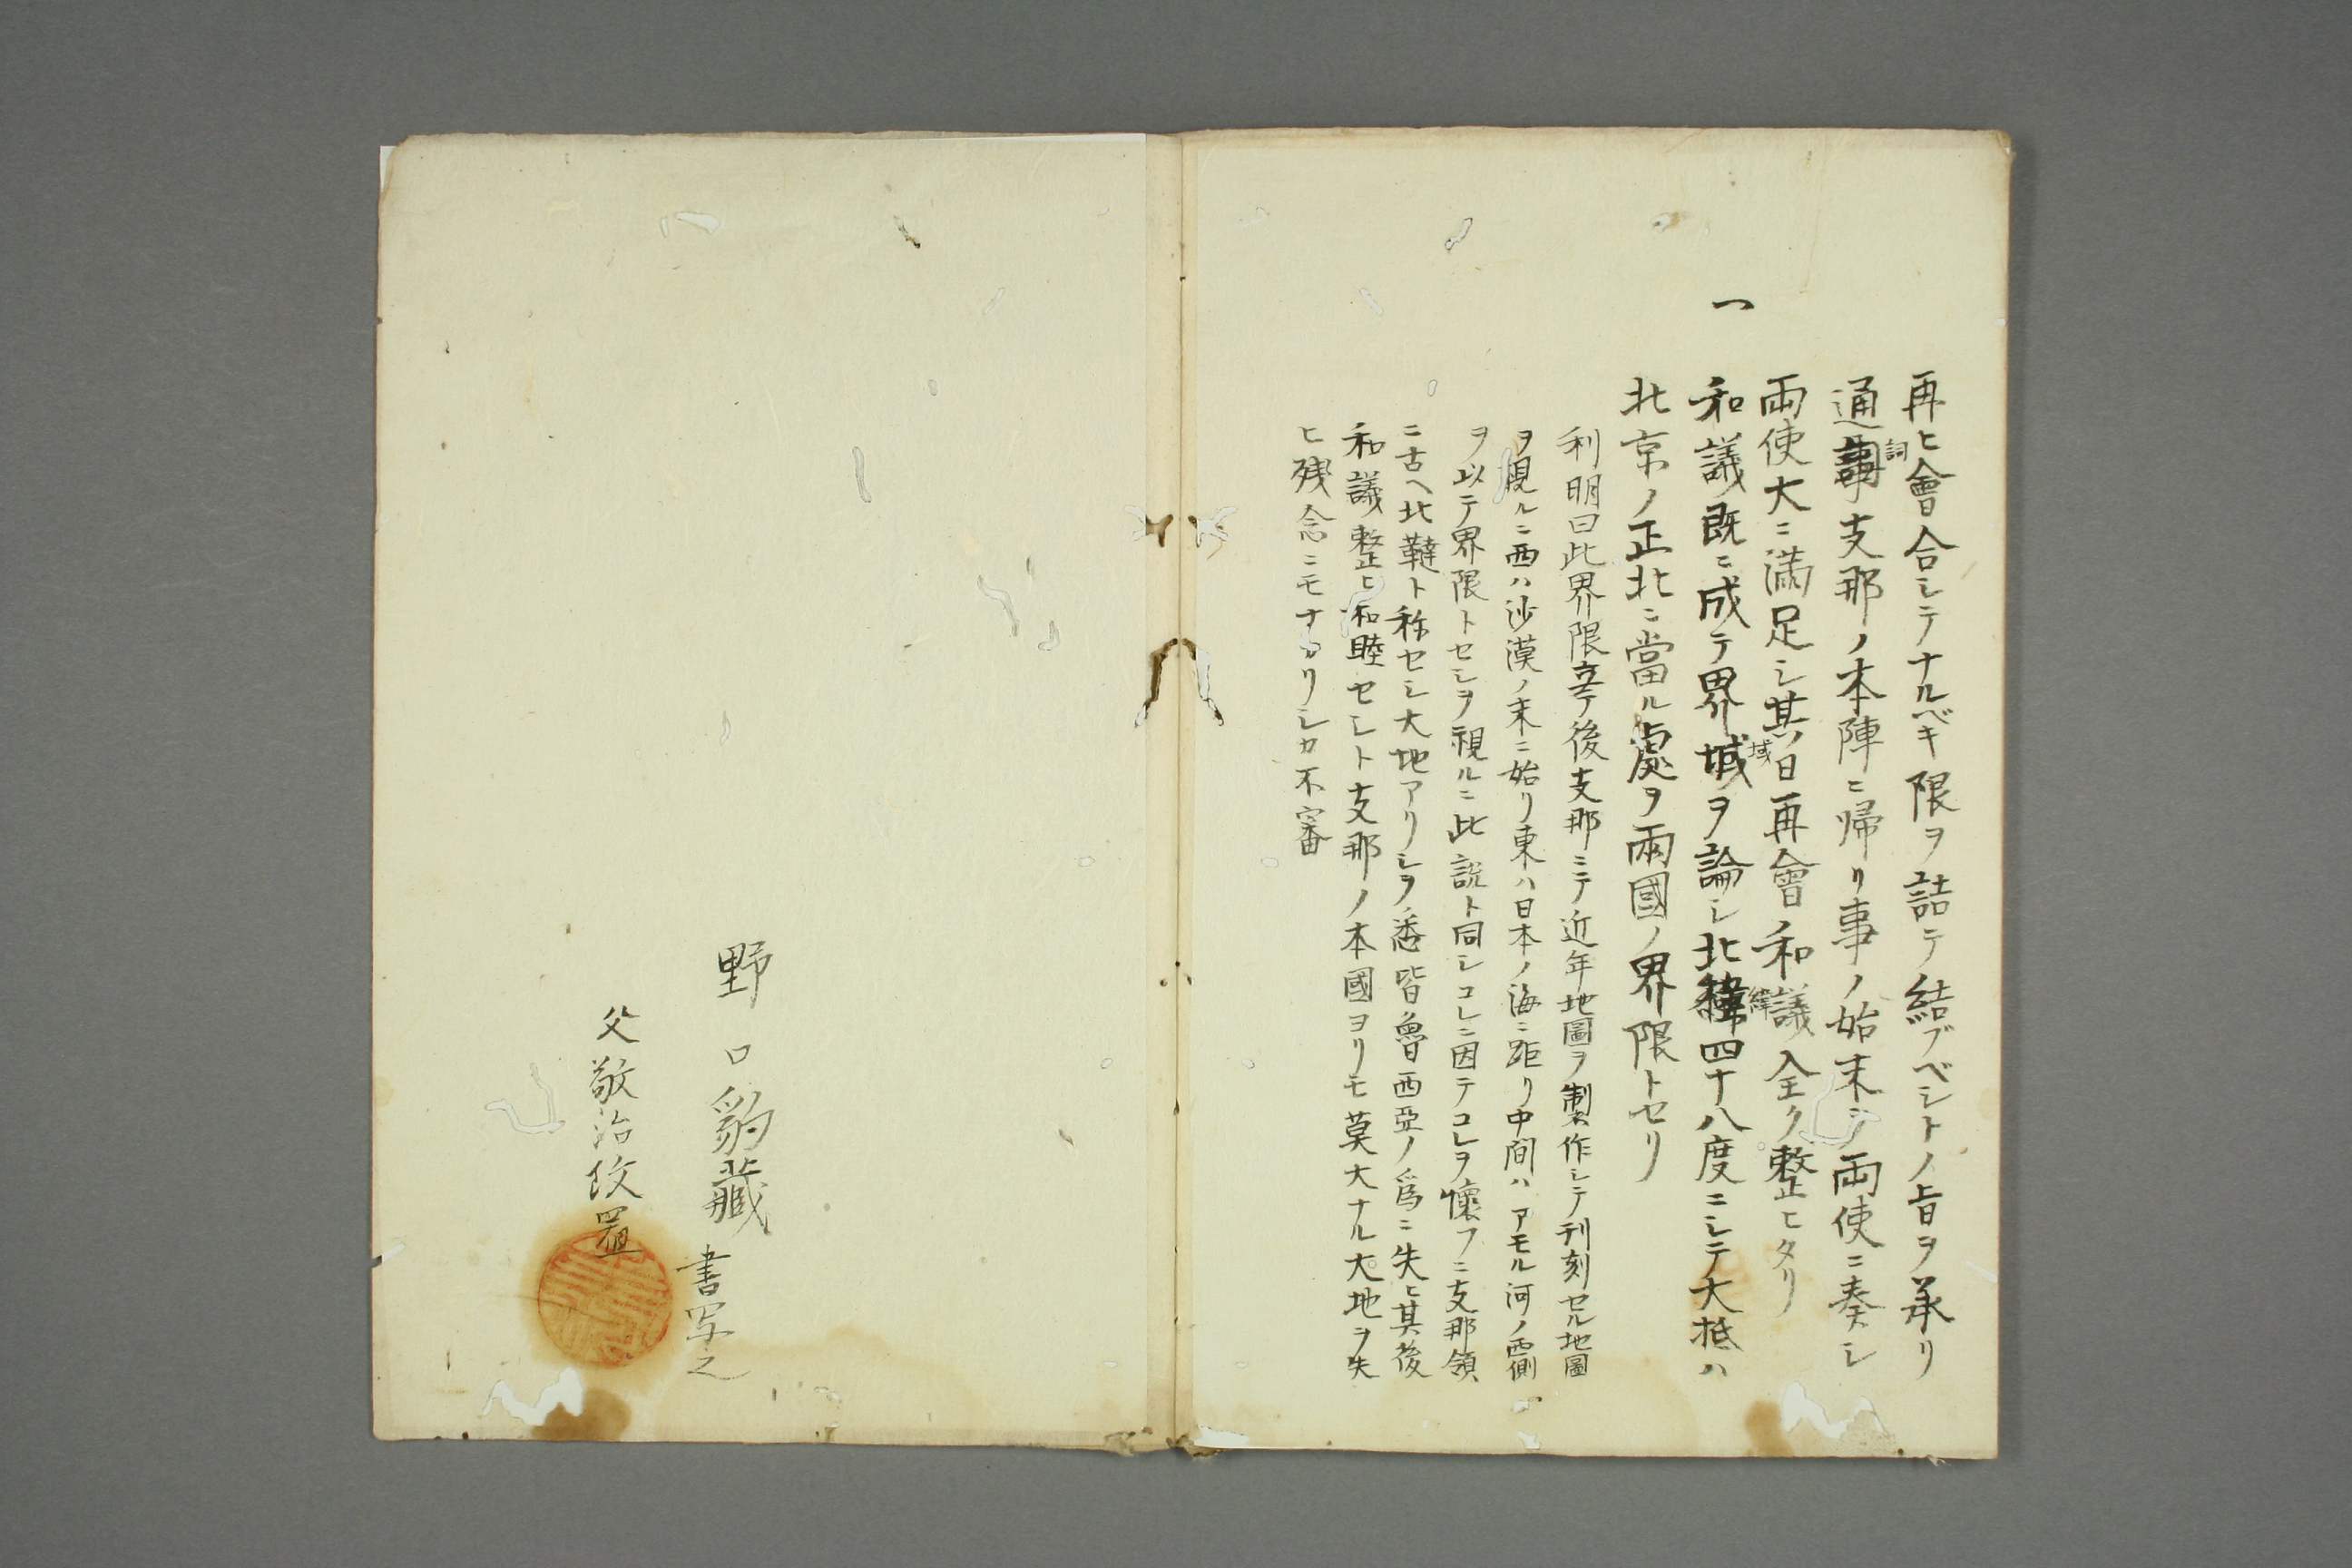 再ヒ會合シテナルベキ限ヲ詰テ結ブベシトノ旨ヲ承リ
通詞支那ノ本陣ニ帰リ事ノ始末ヲ両使ニ奏シ
両使大ニ満足シ其日再會ノ和議全ク整ヒタリ
一 和議既ニ成テ界域ヲ論シ北緯四十八度ニシテ大抵ハ
北京ノ正北ニ當ル處ヲ兩國ノ界限トセリ
利明曰此界限立テ後支那ニテ近年地圖ヲ製作シテ刊刻セル地圖
ヲ視ルニ西ハ沙漠ノ末ニ始リ東ハ日本ノ海ニ距リ中間ハアモル河ノ西側
ヲ以テ界限トセシヲ視ルニ此説ト同シコレニ因テコレヲ懐フニ支那領
ニ古ヘ北韃ト称セシ大地アリシヲ悉皆魯西亞ノ爲ニ失ヒ其後
和議整ヒ和睦セシト支那ノ本國ヨリモ莫大ナル大地ヲ失
ヒ残念ニモナカリシカ不審
野口豹藏 書写之
父敬治置